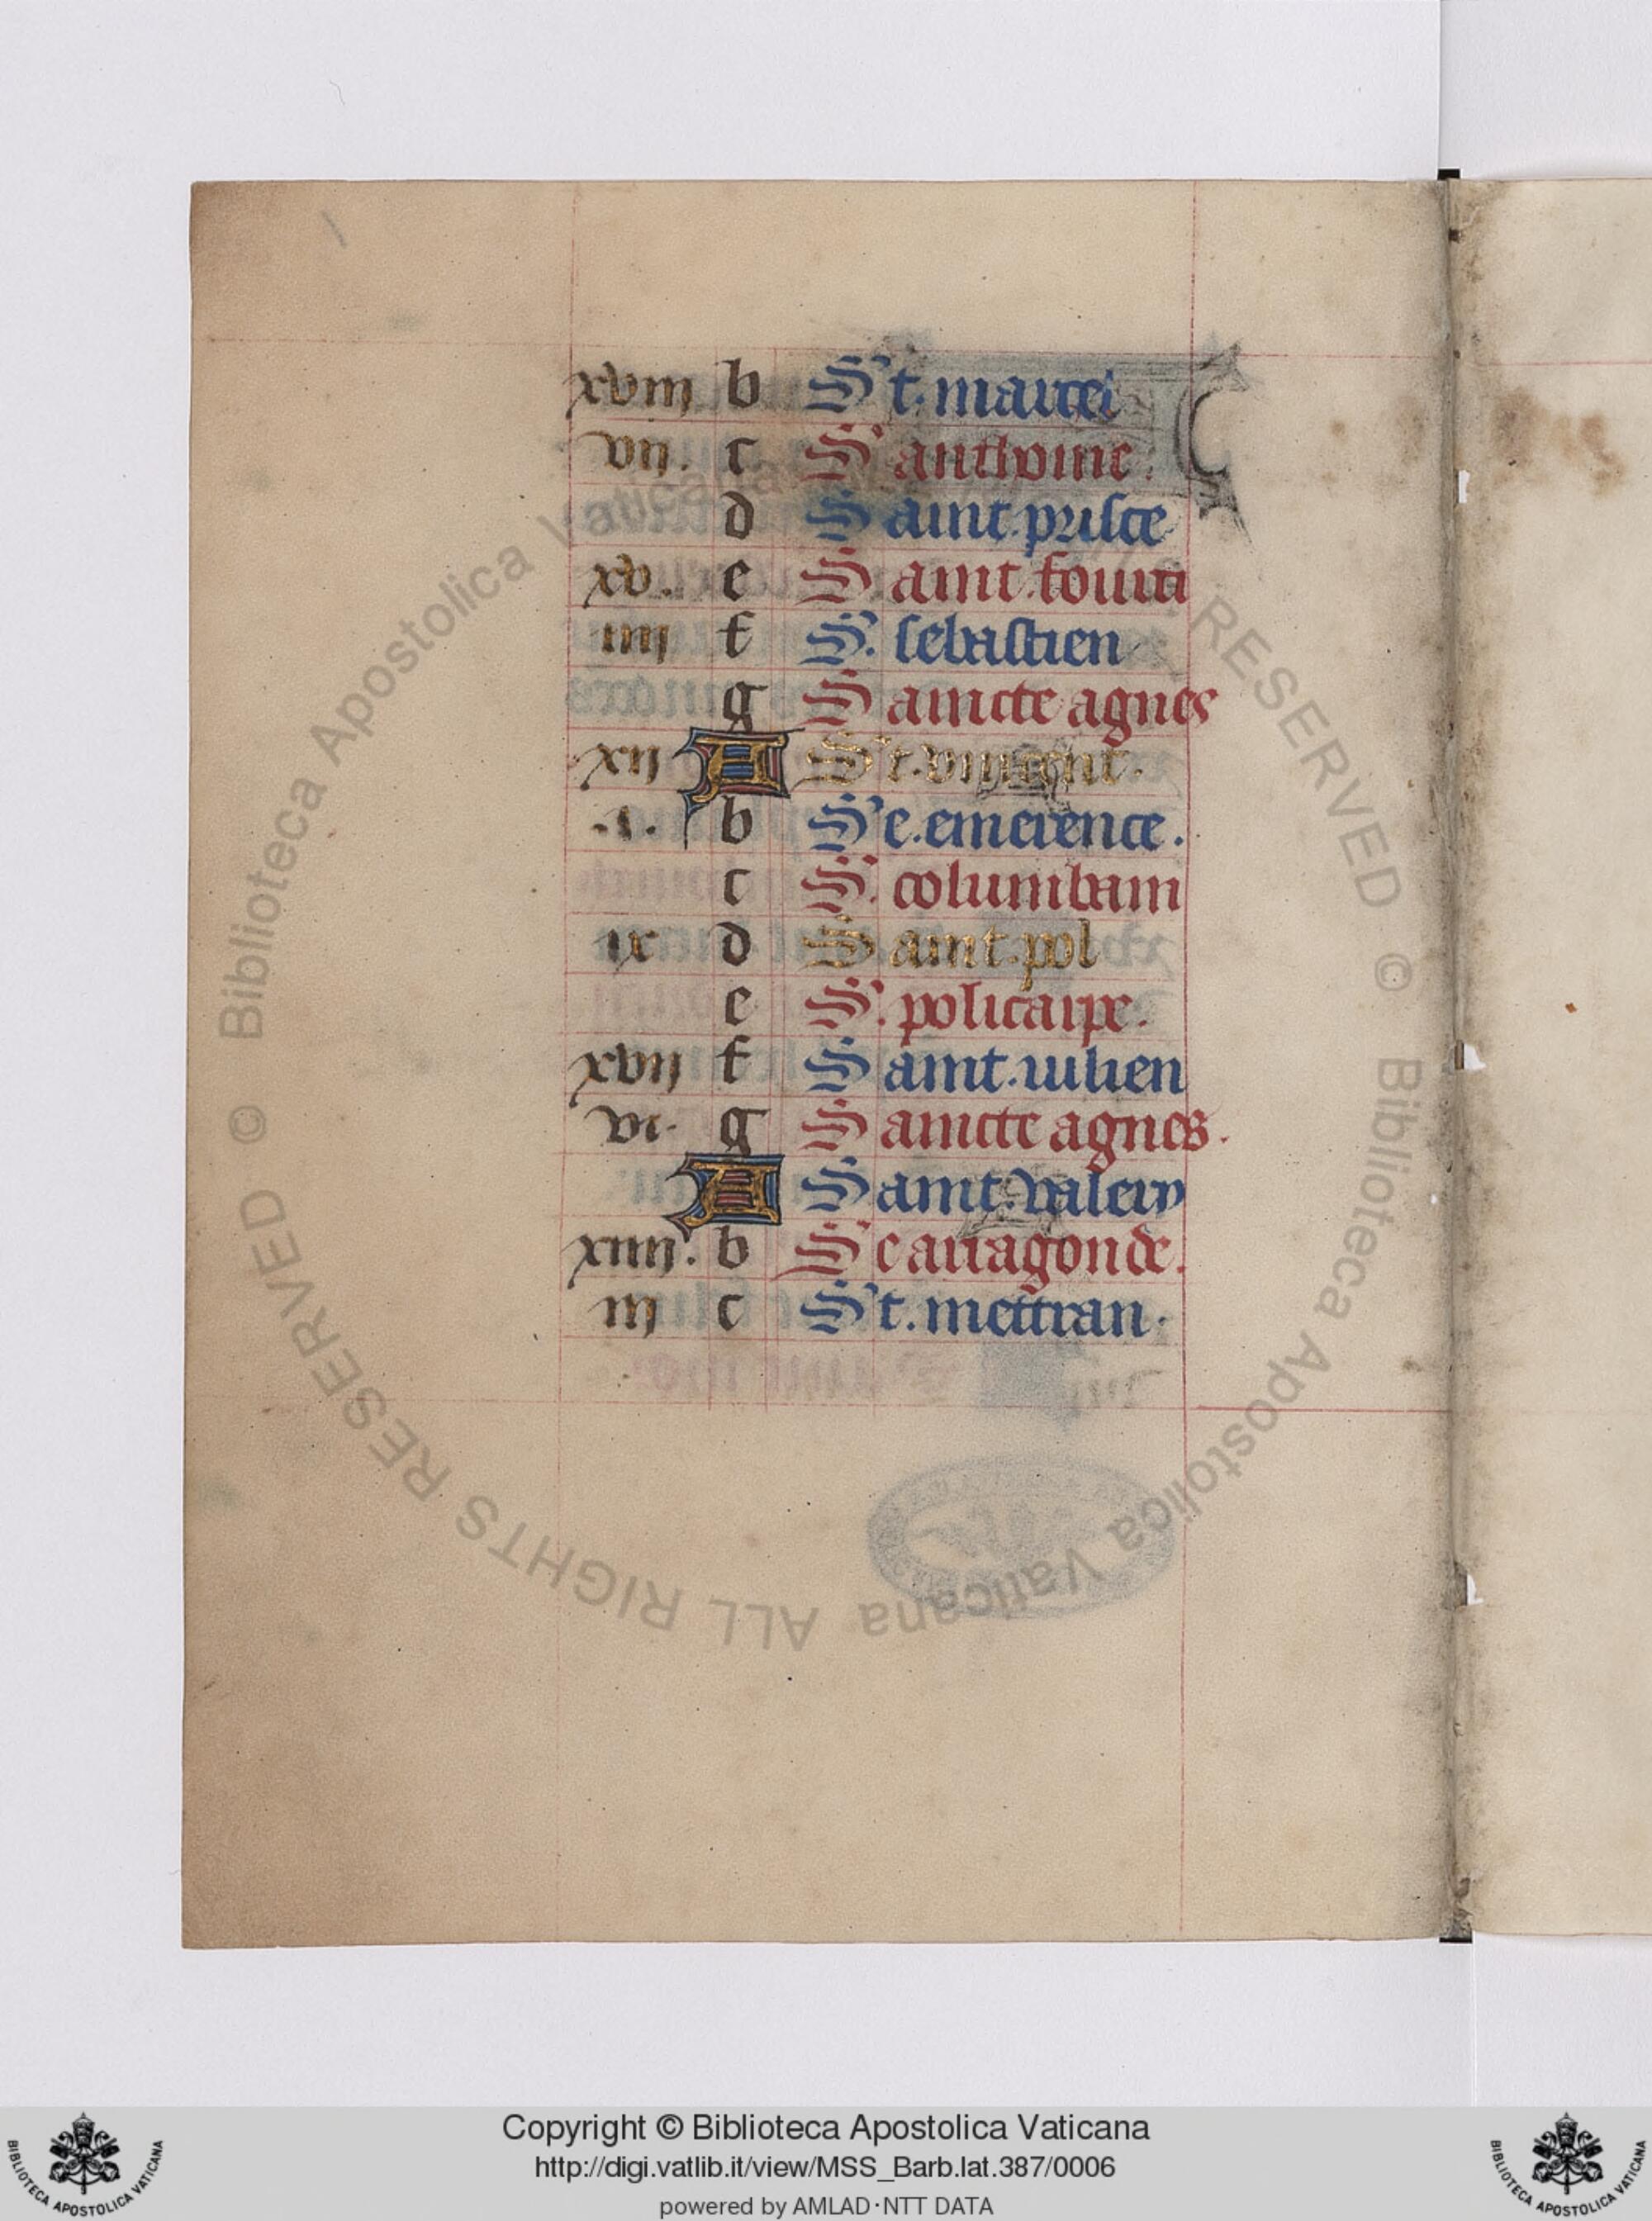 xviii b St. marcel
vii. c S anthoine.
d Saint. prisce
xv. e Saint.
iiii f S. sebastien
g Saincte agnes
xii A St. vincent.
.i. b Se. emerence.
c S. columbain
ix d Saint. pol
e S. policarpe.
xvii f Saint. iulien
vi. g Saincte agnes.
A Saint. valery
xiiii. b Se arragonde.
iii c St. mettran.
© Biblioteca Apostolica Vaticana ALL RIGHTS RESERVED © Biblioteca Apostolica Vaticana ALL RIGHTS RESERVED
Copyright © Biblioteca Apostolica Vaticana
http://digi.vatlib.it/view/MSS_Barb.lat.387/0006
powered by AMLAD·NTT DATA
BIBLIOTECA APOSTOLICA VATICANA
BIBLIOTECA APOSTOLICA VATICANA